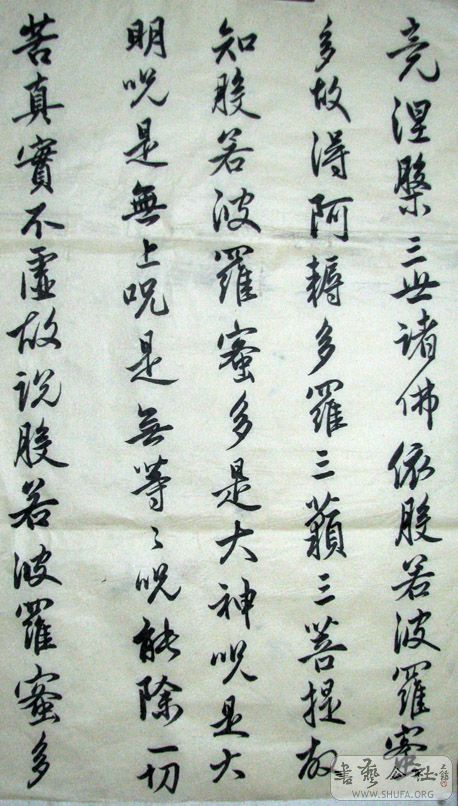 竟涅槃三世諸佛依般若波羅蜜
多故得阿耨多羅三藐三菩提故
知般若波羅蜜多是大神呪是大
明呪是無上呪是無等〻呪能除一切
苦真實不虛故説般若波羅蜜多
書藝公社
WWW.SHUFA.ORG